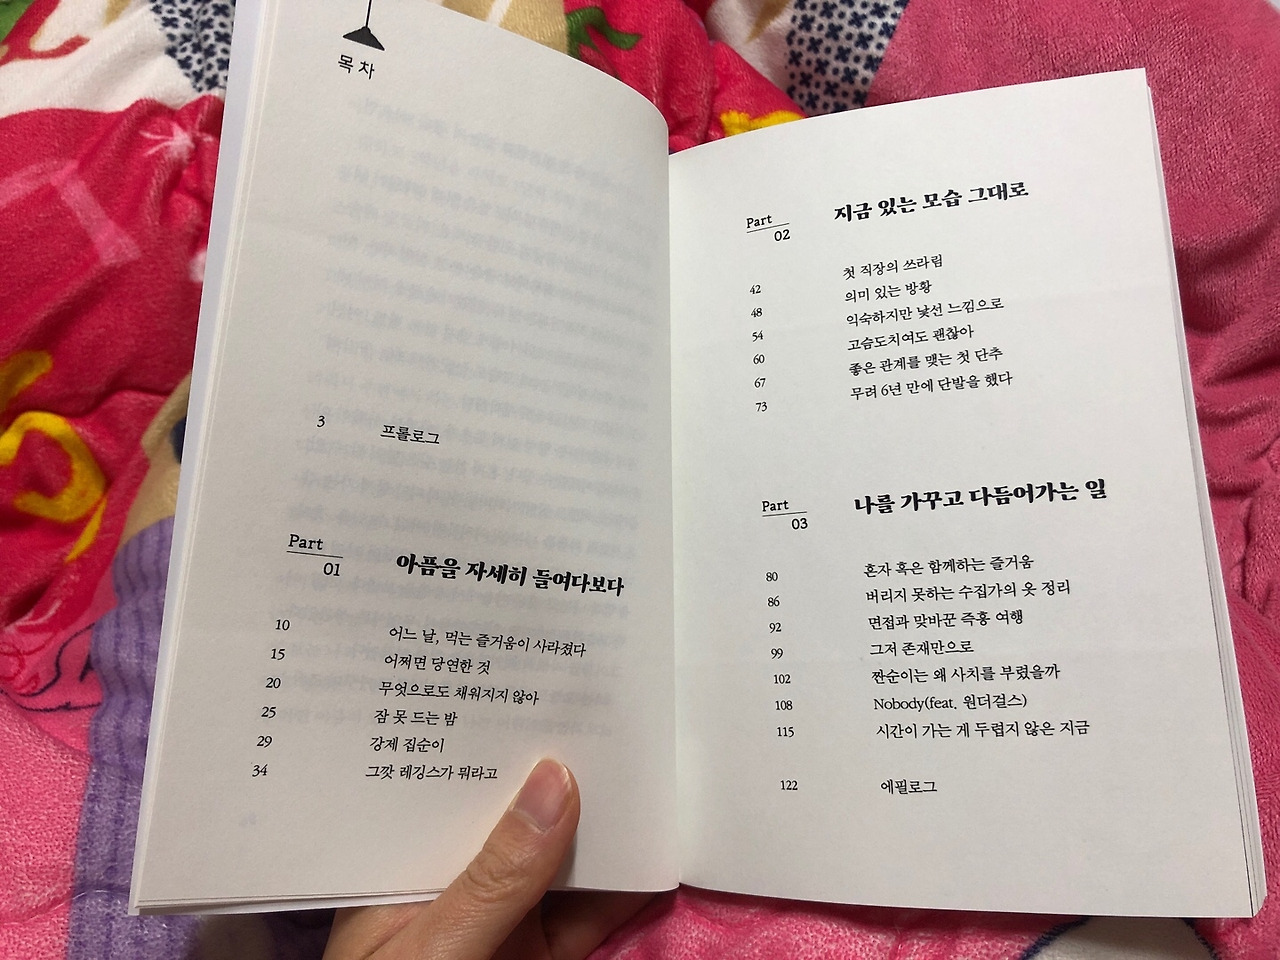 목차
3 프롤로그
Part 01 아픔을 자세히 들여다보다
10 어느 날, 먹는 즐거움이 사라졌다
15 어쩌면 당연한 것
20 무엇으로도 채워지지 않아
25 잠 못 드는 밤
29 강제 집순이
34 그깟 레깅스가 뭐라고
Part 02 지금 있는 모습 그대로
42 첫 직장의 쓰라림
48 의미 있는 방황
54 익숙하지만 낯선 느낌으로
60 고슴도치여도 괜찮아
67 좋은 관계를 맺는 첫 단추
73 무려 6년 만에 단발을 했다
Part 03 나를 가꾸고 다듬어가는 일
80 혼자 혹은 함께하는 즐거움
86 버리지 못하는 수집가의 옷 정리
92 면접과 맞바꾼 즉흥 여행
99 그저 존재만으로
102 짠순이는 왜 사치를 부렸을까
108 Nobody(feat. 원더걸스)
115 시간이 가는 게 두렵지 않은 지금
122 에필로그